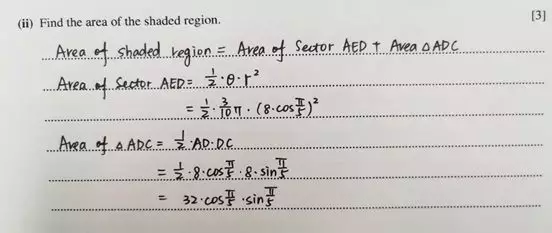 (ii) Find the area of the shaded region. [3]
Area of shaded region = Area of Sector AED + Area △ADC
Area of Sector AED = 1/2 · θ · r²
= 1/2 · 3/10 π · (8·cos π/5)²
Area of △ADC = 1/2 · AD · DC
= 1/2 · 8 · cos π/5 · 8 · sin π/5
= 32 · cos π/5 · sin π/5